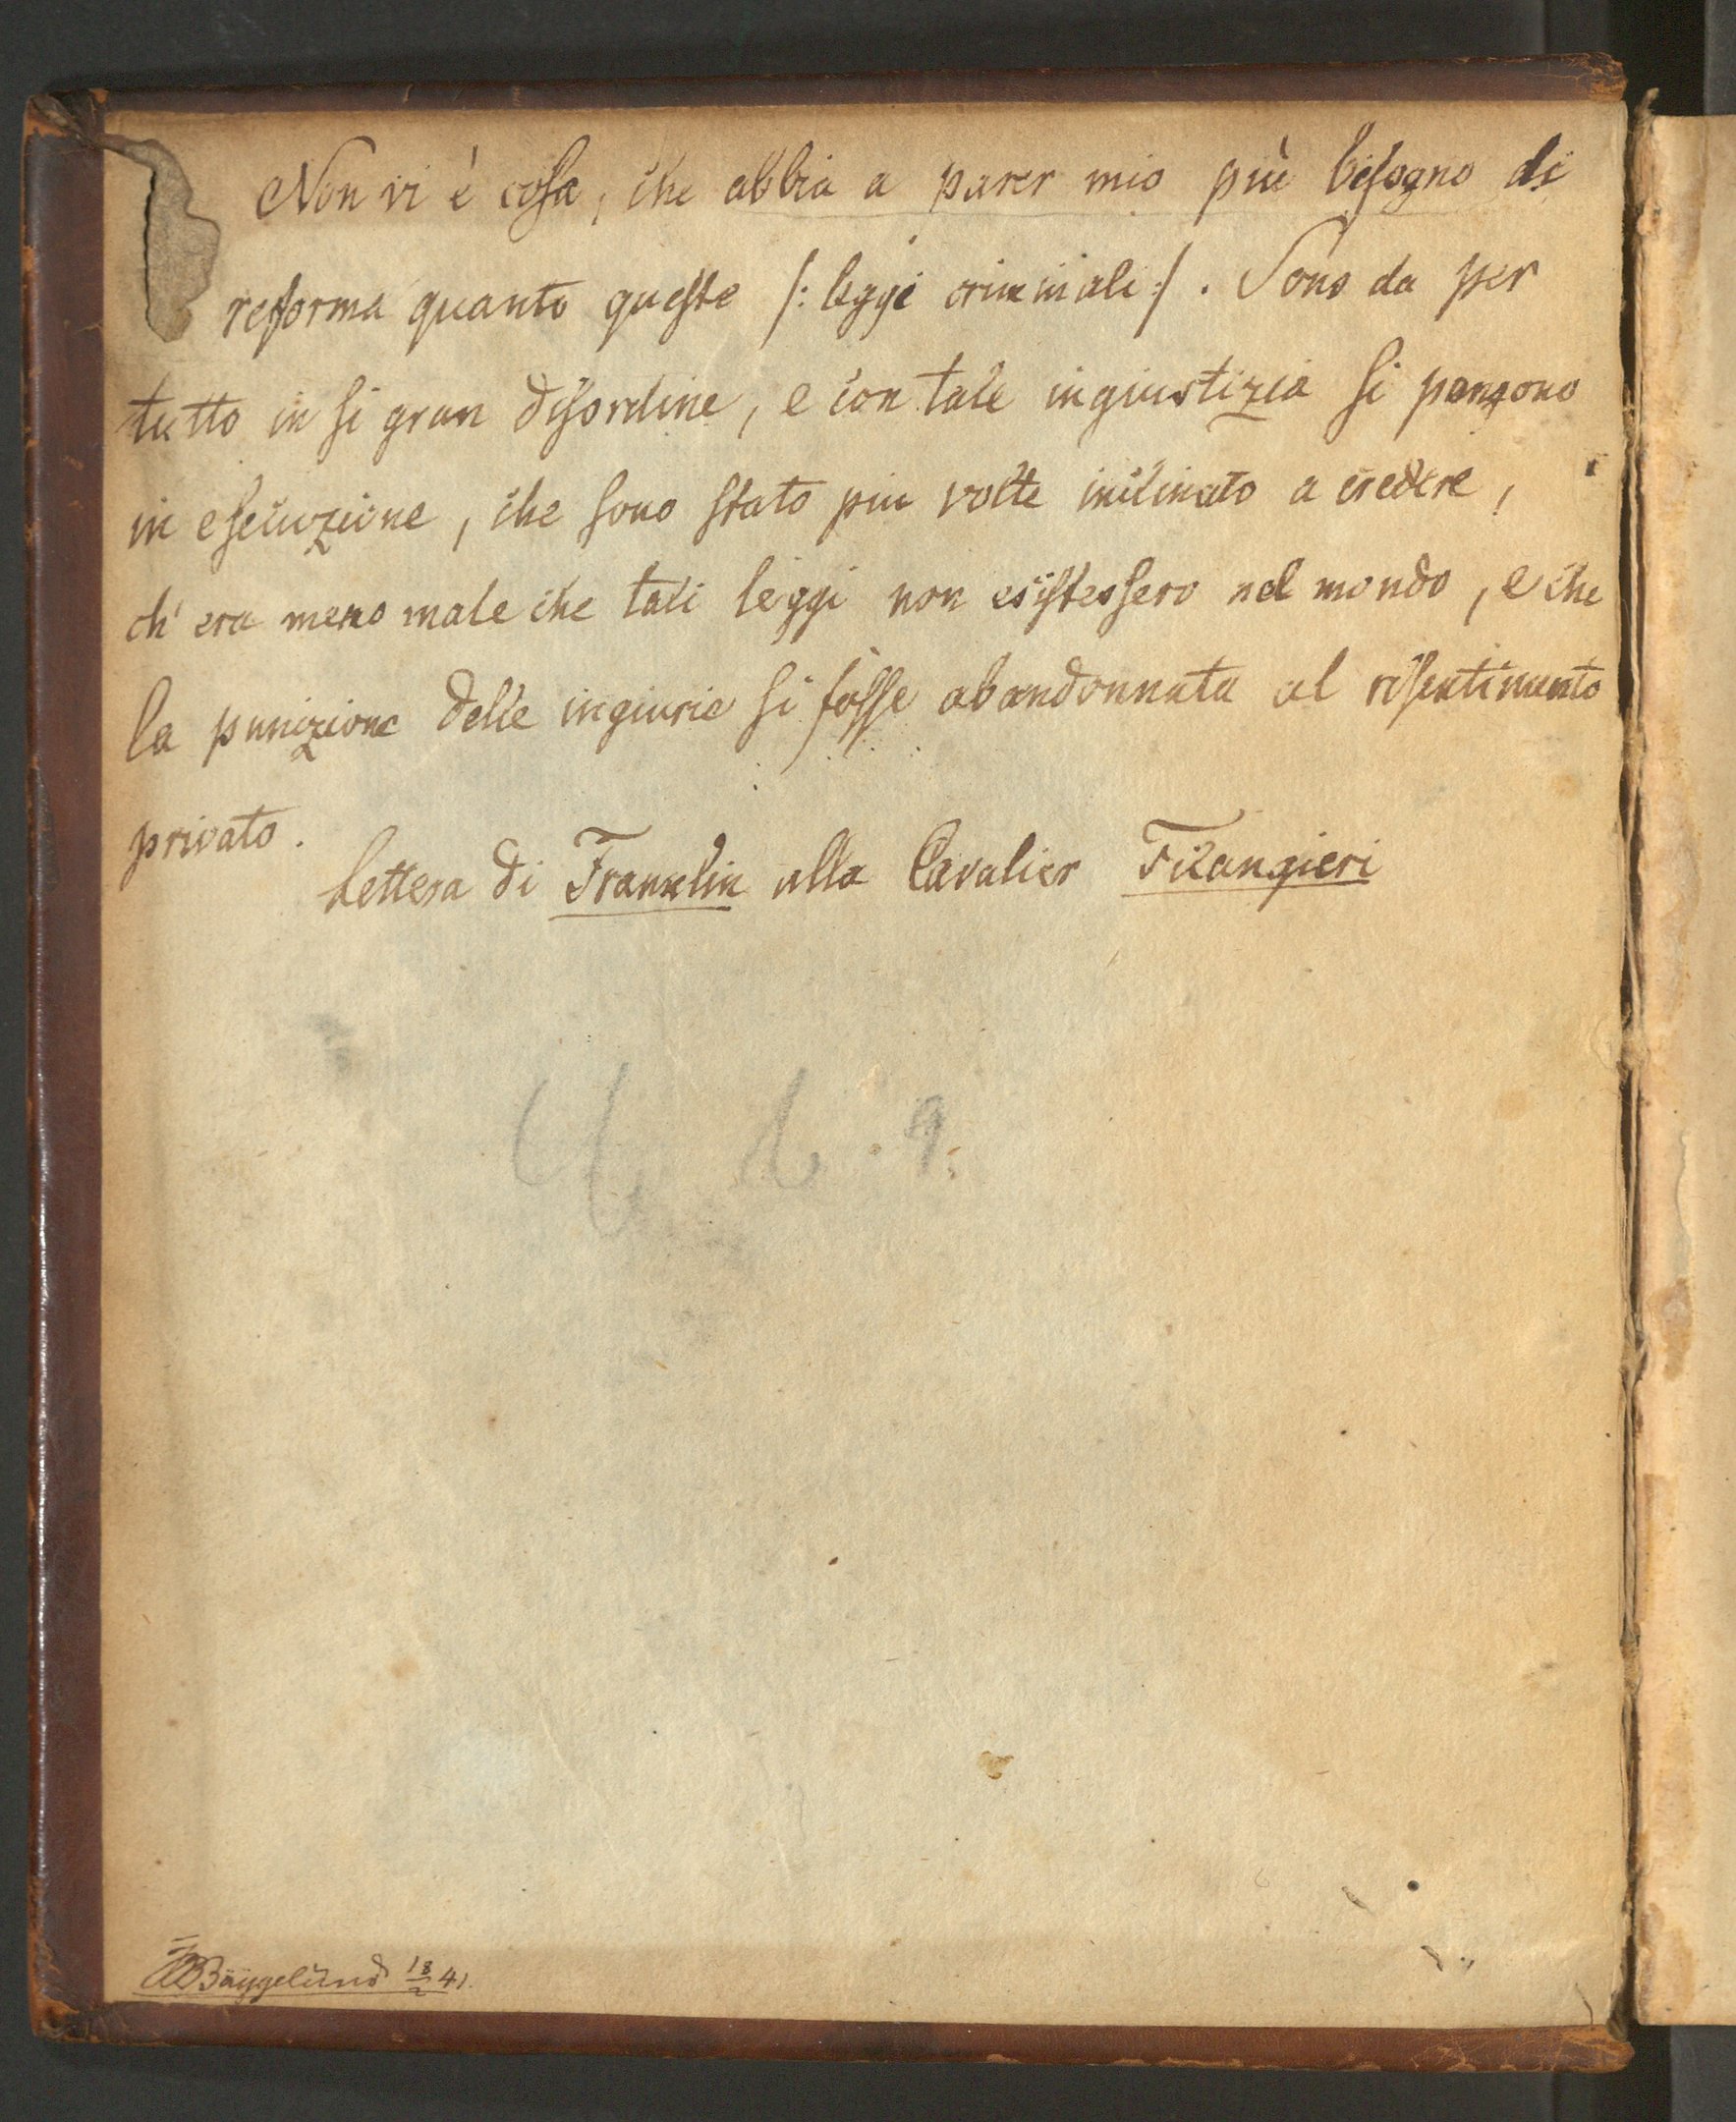 Non vi è cosa, che abbia a parer mio più bisogno di
reforma quanto queste /: leggi criminali :/. Sono da per
tutto in si gran disordine, e con tale ingiustizia si pongono
in esecuzione, che sono stato piu volte inclinato a credere,
ch' era meno male che tali leggi non esistessero nel mondo, e che
la punizione delle ingiurie si fosse abandonnata al risentimento
privato.
Lettera di Franklin alla Cavalier Filangieri
Bäggelund 18/2 41.